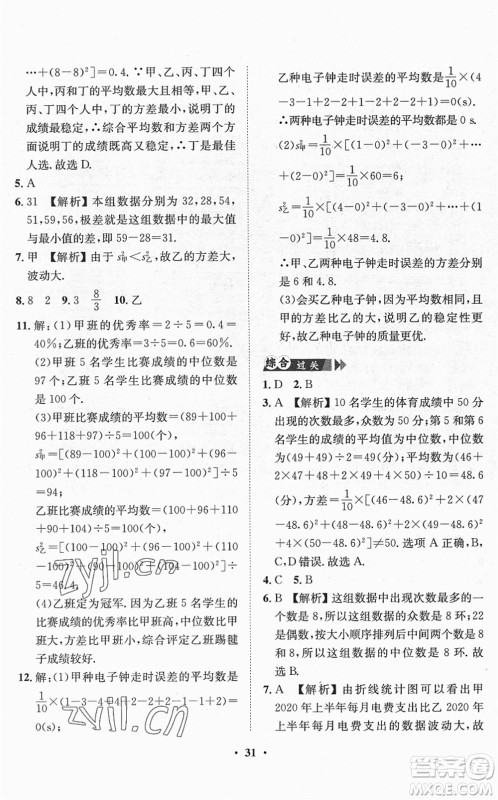 …+(8-8)²]=0.4. ∵甲、乙、丙、丁四个
人中，甲、丙的平均数最大且相等，甲、乙、
丙、丁四个人中，丁的方差最小，说明丁的
成绩最稳定，∴综合平均数和方差两个方
面说明丁的成绩既高又稳定，∴丁是最佳
人选.故选D.
5. A
6. 31 【解析】本组数据分别为32,28,54,
51,59,56,极差就是这组数据中最大值与
最小值的差,即59-28=31.
7. 甲 【解析】由于s²甲<s²乙,故乙的方差大,
波动大.
8. 8 2 9. 3 8/3 10. 乙
11. 解:(1)甲班的优秀率=2÷5=0.4=
40%;乙班的优秀率=3÷5=0.6=60%.
(2)甲班5名学生比赛成绩的中位数是
97个;乙班5名学生比赛成绩的中位数是
100个.
(3)甲班的平均数=(89+100+96+
118+97)÷5=100(个),
s²甲=[(89-100)²+(100-100)²+(96-
100)²+(118-100)²+(97-100)²]÷5
=94;
乙班的平均数=(100+96+110
+90+104)÷5=100(个),
s²乙=[(100-100)²+(96-100)²+(110-
100)²+(90-100)²+(104-100)²]÷5=46.4.
(4)乙班定为冠军.因为乙班5名学生的
比赛成绩的优秀率比甲班高,中位数比甲
班大,方差比甲班小,综合评定乙班踢毽
子成绩较好.
12. 解:(1)甲种电子钟走时误差的平均数是
1/10×(1-3-4+4+2-2+2-1-1+2)=
0(s),
乙种电子钟走时误差的平均数是1/10×(4
-3-1+2-2+1-2+2-2+1)=0(s).
∴两种电子钟走时误差的平均数都是0 s.
(2)s²甲=1/10×[(1-0)²+(-3-0)²+…+
(2-0)²]=1/10×60=6;
s²乙=1/10×[(4-0)²+(-3-0)²+…+
(1-0)²]=1/10×48=4.8.
∴甲、乙两种电子钟走时误差的方差分别
是6和4.8.
(3)会买乙种电子钟,因为平均数相同,且
甲的方差比乙的大,说明乙的稳定性更
好,故乙种电子钟的质量更优.
综合 过关
1. D 2. B
3. A 【解析】10名学生的体育成绩中50分
出现的次数最多,众数为50分;第5和第6
名学生的成绩的平均值为中位数,中位数
为(49+49)÷2=49(分);平均数=(46+
2×47+48+2×49+4×50)÷10=48.6
(分),方差=1/10×[(46-48.6)²+2×(47
-48.6)²+(48-48.6)²+2×(49-
48.6)²+4×(50-48.6)²]≠50.选项A正确,B,
C,D错误.故选A.
4. C 5. B
6. B 【解析】数据8出现次数最多的一个
数,所以这组数据的众数是8环;22是偶
数,按大小顺序排列后中间两个数是8环
和8环,所以这组数据的中位数是8环.故
选B.
7. A 【解析】由折线统计图可以看出甲
2020年上半年每月电费支出比乙2020年
上半年每月电费支出的数据波动大,故
31
zyjl.cn
答案圈